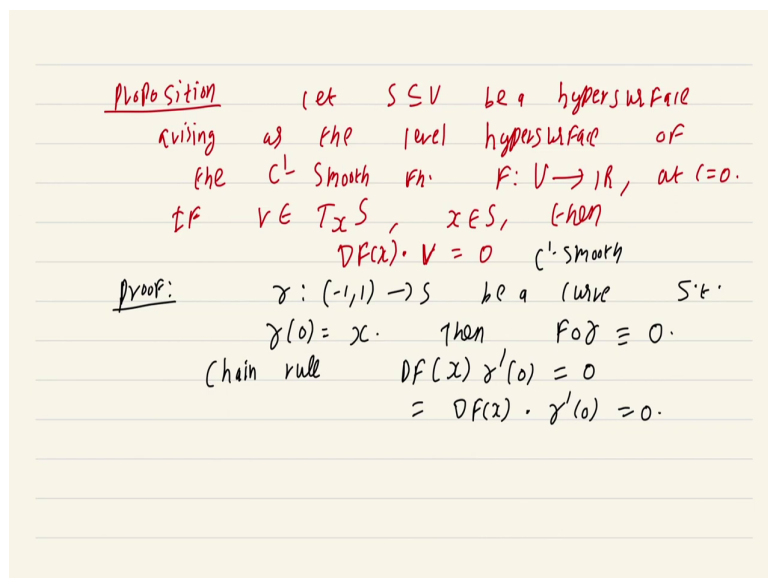 Proposition let S ⊆ V be a hypersurface
arising as the level hypersurface of
the C¹ Smooth Fn. F: V → IR, at C=0.
IF V ∈ TₓS, x ∈ S, then
DF(x) · V = 0 C¹-smooth
Proof: γ : (-1,1) → S be a curve S.t.
γ(0) = x. Then Foγ ≡ 0.
Chain rule DF(x) γ'(0) = 0
= DF(x) · γ'(0) = 0.